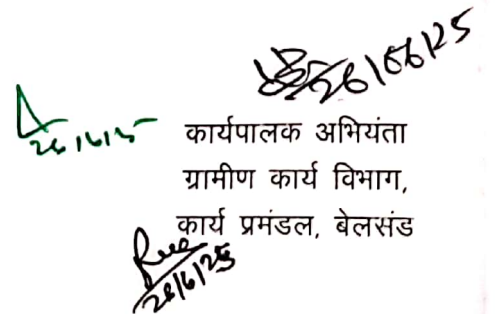 26/06/25
26/6/25
कार्यपालक अभियंता
ग्रामीण कार्य विभाग,
कार्य प्रमंडल, बेलसंड
26/6/25